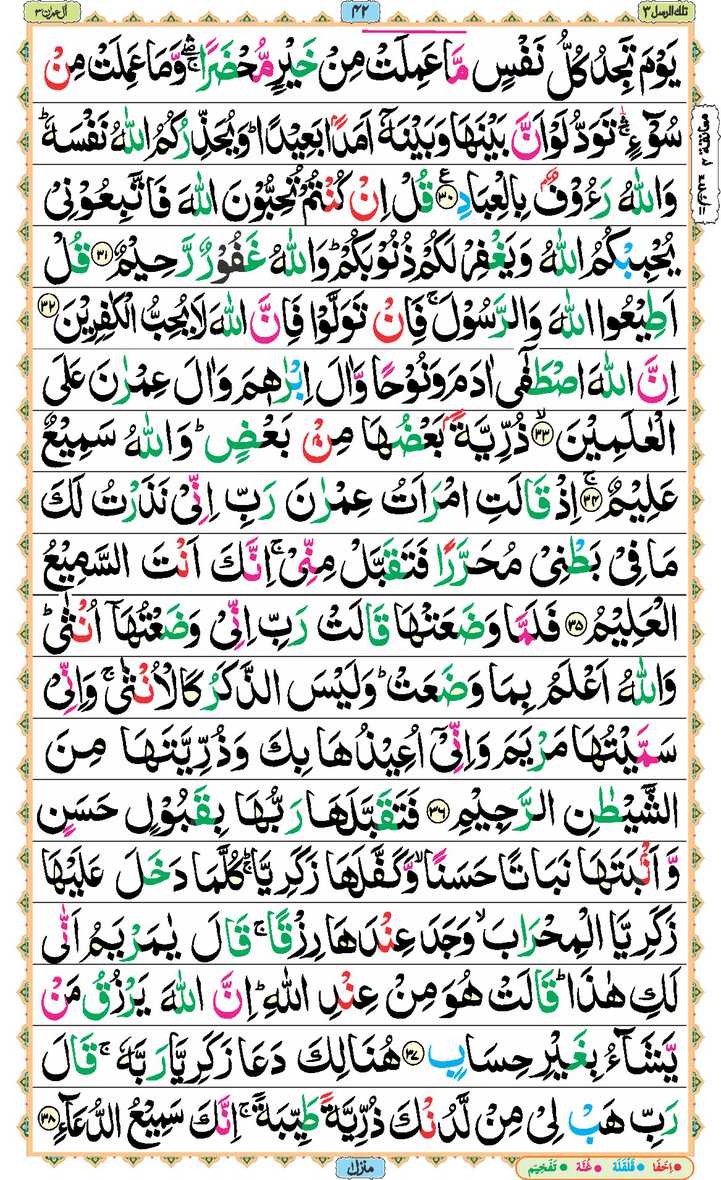 تلك الرسل ٣
٤٢
اٰل عمرٰن ٣
يَوْمَ تَجِدُ كُلُّ نَفْسٍ مَّا عَمِلَتْ مِنْ خَيْرٍ مُّحْضَرًا ۛۖۚ وَّمَا عَمِلَتْ مِنْ
سُوْٓءٍ ۛۚ تَوَدُّ لَوْ اَنَّ بَيْنَهَا وَبَيْنَهٗۤ اَمَدًۢا بَعِيْدًا ؕ وَيُحَذِّرُكُمُ اللّٰهُ نَفْسَهٗ ؕ
وَاللّٰهُ رَءُوْفٌۢ بِالْعِبَادِ ﴿۳۰﴾ قُلْ اِنْ كُنْتُمْ تُحِبُّوْنَ اللّٰهَ فَاتَّبِعُوْنِيْ
يُحْبِبْكُمُ اللّٰهُ وَيَغْفِرْ لَكُمْ ذُنُوْبَكُمْ ؕ وَاللّٰهُ غَفُوْرٌ رَّحِيْمٌ ﴿۳۱﴾ قُلْ
اَطِيْعُوا اللّٰهَ وَالرَّسُوْلَ ۚ فَاِنْ تَوَلَّوْا فَاِنَّ اللّٰهَ لَا يُحِبُّ الْكٰفِرِيْنَ ﴿۳۲﴾
اِنَّ اللّٰهَ اصْطَفٰۤى اٰدَمَ وَنُوْحًا وَّاٰلَ اِبْرٰهِيْمَ وَاٰلَ عِمْرٰنَ عَلَى
الْعٰلَمِيْنَ ﴿۳۳﴾ ۙ ذُرِّيَّةًۢ بَعْضُهَا مِنْۢ بَعْضٍ ؕ وَاللّٰهُ سَمِيْعٌ
عَلِيْمٌ ﴿۳۴﴾ ۚ اِذْ قَالَتِ امْرَاَتُ عِمْرٰنَ رَبِّ اِنِّيْ نَذَرْتُ لَكَ
مَا فِيْ بَطْنِيْ مُحَرَّرًا فَتَقَبَّلْ مِنِّيْ ۚ اِنَّكَ اَنْتَ السَّمِيْعُ
الْعَلِيْمُ ﴿۳۵﴾ فَلَمَّا وَضَعَتْهَا قَالَتْ رَبِّ اِنِّيْ وَضَعْتُهَاۤ اُنْثٰى ؕ
وَاللّٰهُ اَعْلَمُ بِمَا وَضَعَتْ ؕ وَلَيْسَ الذَّكَرُ كَالْاُنْثٰى ۚ وَاِنِّيْ
سَمَّيْتُهَا مَرْيَمَ وَاِنِّيْۤ اُعِيْذُهَا بِكَ وَذُرِّيَّتَهَا مِنَ
الشَّيْطٰنِ الرَّجِيْمِ ﴿۳۶﴾ فَتَقَبَّلَهَا رَبُّهَا بِقَبُوْلٍ حَسَنٍ
وَّاَنْۢبَتَهَا نَبَاتًا حَسَنًا ۙ وَّكَفَّلَهَا زَكَرِيَّا ؕۚ كُلَّمَا دَخَلَ عَلَيْهَا
زَكَرِيَّا الْمِحْرَابَ ۙ وَجَدَ عِنْدَهَا رِزْقًا ۚ قَالَ يٰمَرْيَمُ اَنّٰى
لَكِ هٰذَا ؕ قَالَتْ هُوَ مِنْ عِنْدِ اللّٰهِ ؕ اِنَّ اللّٰهَ يَرْزُقُ مَنْ
يَّشَآءُ بِغَيْرِ حِسَابٍ ﴿۳۷﴾ هُنَالِكَ دَعَا زَكَرِيَّا رَبَّهٗ ۚ قَالَ
رَبِّ هَبْ لِيْ مِنْ لَّدُنْكَ ذُرِّيَّةً طَيِّبَةً ۚ اِنَّكَ سَمِيْعُ الدُّعَآءِ ﴿۳۸﴾
معانقة
منزل
اِخْفَا
قَلْقَلَة
غُنَّة
تَفْخِيْم